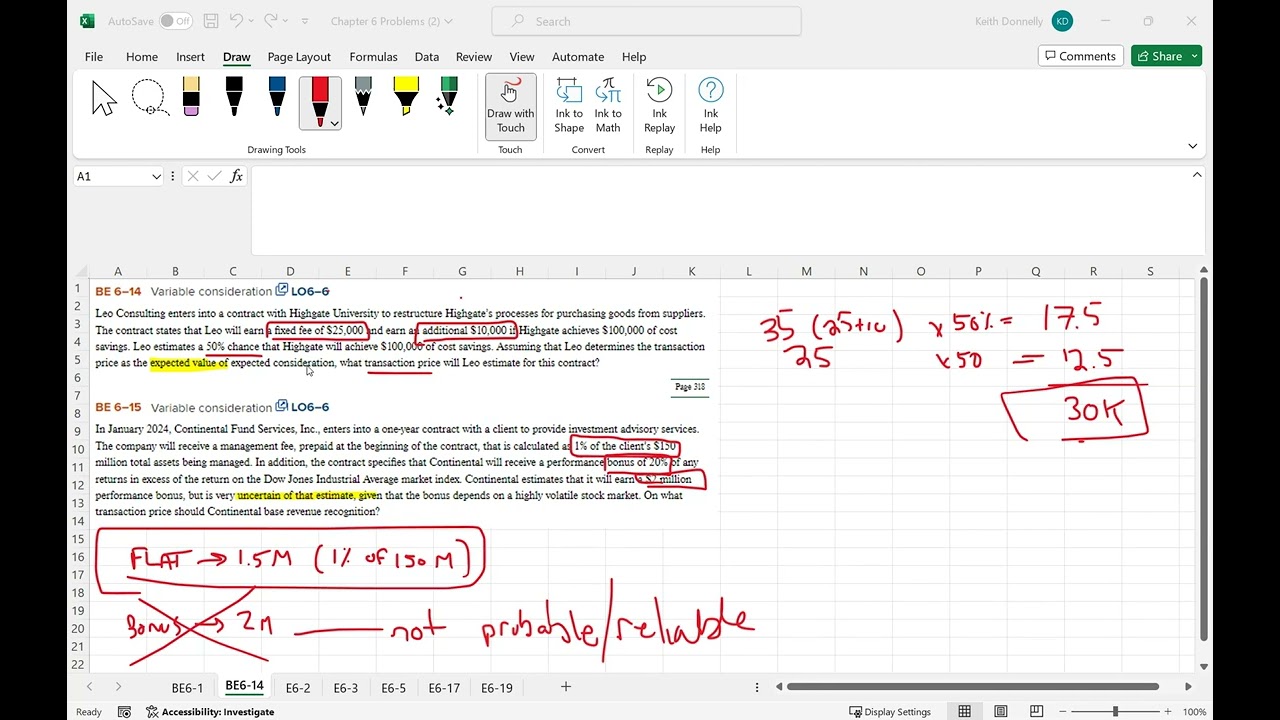 AutoSave Off Chapter 6 Problems (2) Search Keith Donnelly KD
File Home Insert Draw Page Layout Formulas Data Review View Automate Help Comments Share
Draw with Touch Ink to Shape Ink to Math Ink Replay Ink Help
Drawing Tools Touch Convert Replay Help
A1 fx
A B C D E F G H I J K L M N O P Q R S
1 BE 6–14 Variable consideration LO6–6
2
Leo Consulting enters into a contract with Highgate University to restructure Highgate's processes for purchasing goods from suppliers.
3 The contract states that Leo will earn a fixed fee of $25,000 and earn an additional $10,000 if Highgate achieves $100,000 of cost
4 savings. Leo estimates a 50% chance that Highgate will achieve $100,000 of cost savings. Assuming that Leo determines the transaction
5 price as the expected value of expected consideration, what transaction price will Leo estimate for this contract?
35 (25+10) x 50% = 17.5
25 x50 = 12.5
30K
6
Page 318
7
8 BE 6–15 Variable consideration LO6–6
9 In January 2024, Continental Fund Services, Inc., enters into a one-year contract with a client to provide investment advisory services.
10 The company will receive a management fee, prepaid at the beginning of the contract, that is calculated as 1% of the client's $150
11 million total assets being managed. In addition, the contract specifies that Continental will receive a performance bonus of 20% of any
12 returns in excess of the return on the Dow Jones Industrial Average market index. Continental estimates that it will earn a $2 million
13 performance bonus, but is very uncertain of that estimate, given that the bonus depends on a highly volatile stock market. On what
14 transaction price should Continental base revenue recognition?
15
16 FLAT → 1.5M (1% OF 150 M)
17
18
19
20 Bonus → 2M not probable/reliable
21
22
BE6-1 BE6-14 E6-2 E6-3 E6-5 E6-17 E6-19 +
Ready Accessibility: Investigate Display Settings 100%